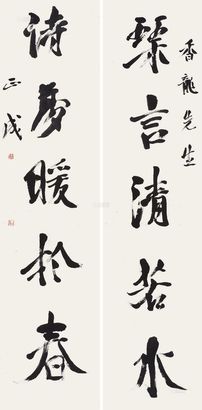 香龍先生
琴言清若水
诗夢暖於春
正成